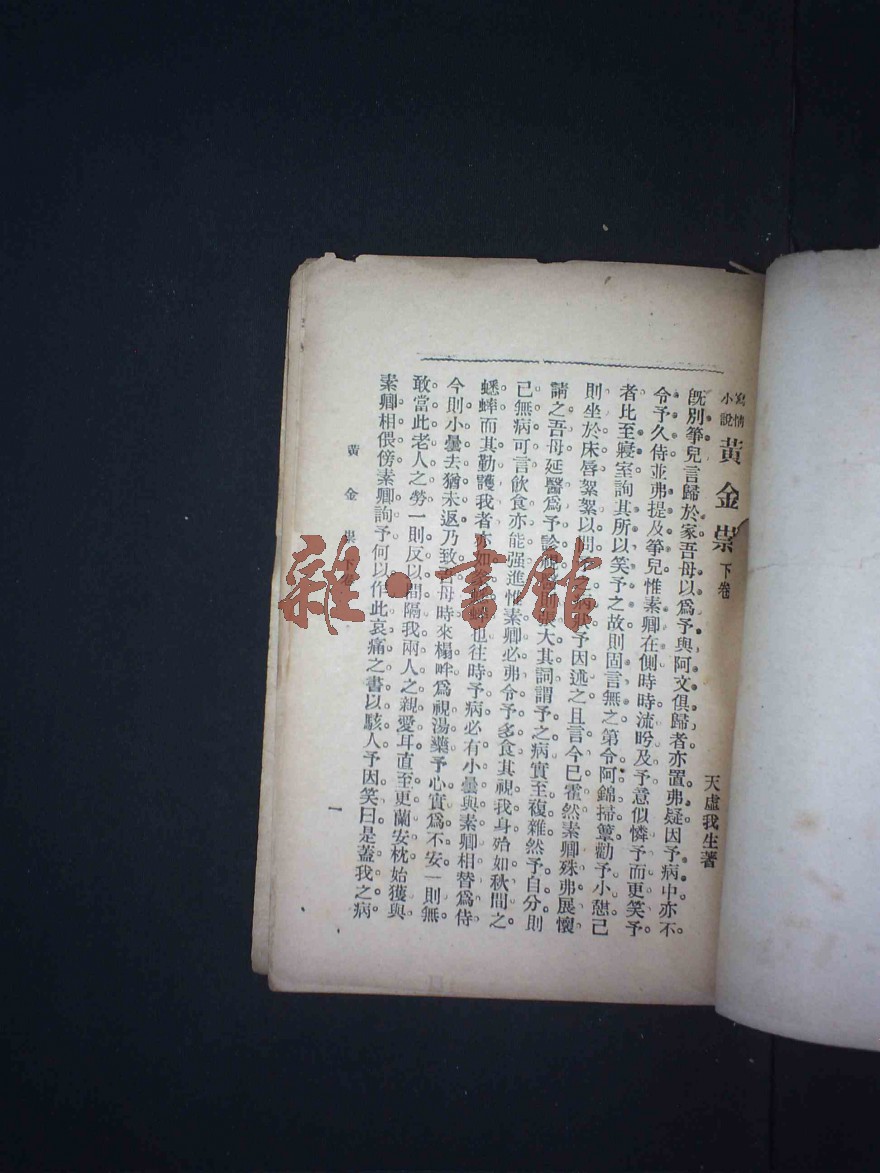 寫情小說 黃金祟 下卷
天虛我生著
旣別箏兒言歸於家吾母以爲予與阿文俱歸者亦置弗疑因予病中亦不
令予久侍並弗提及箏兒惟素卿在側時時流盼及予意似憐予而更笑予
者比至寢室詢其所以笑予之故則固言無之第令阿錦掃簟勸予小憇己
則坐於床唇絮絮以問予因述之且言今已霍然素卿殊弗展懷
請之吾母延醫爲予診視大其詞謂予之病實至複雜然予自分則
已無病可言飲食亦能强進惟素卿必弗令予多食其視我身殆如秋間之
蟋蟀而其勤護我者亦如也往時予病必有小曇與素卿相替爲侍
今則小曇去猶未返乃致吾母時來榻畔爲視湯藥予心實爲不安一則無
敢當此老人之勞一則反以間隔我兩人之親愛耳直至更闌安枕始獲與
素卿相偎傍素卿詢予何以作此哀痛之書以駭人予因笑曰是蓋我之病
黃金祟 下
一
雜·書館